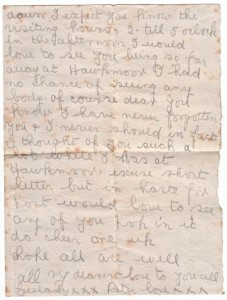 down I expect you know the
visiting hours, 2. till 5 oclock
in the afternoon I would
love to see you being so far
away at Hawkmoor I had
no chance of seeing any
body of course dear you
know I have never forgotten
you & I never should in fact
I thought of you such a
lot while I was at
Hawkmoor, excuse short
letter but in haste for
Post would love to see
any of you pop in it
do cheer one up
hope all are well
all my dearest love to you all
xxx love xxx